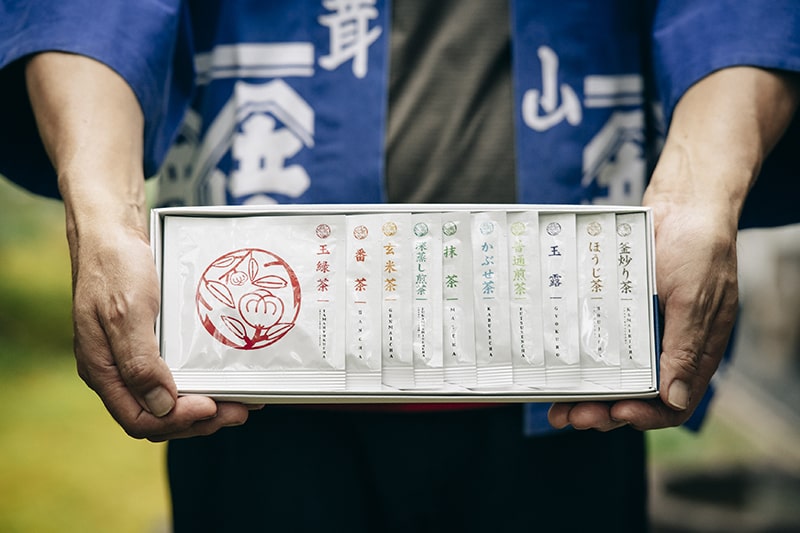 茸
山
玉緑茶
TAMARYOKUCHA
番茶
BANCHA
玄米茶
GENMAICHA
深蒸し煎茶
抹茶
MATCHA
かぶせ茶
KABUSECHA
普通煎茶
玉露
GYOKURO
ほうじ茶
HOUJICHA
釜炒り茶
KAMAIRICHA